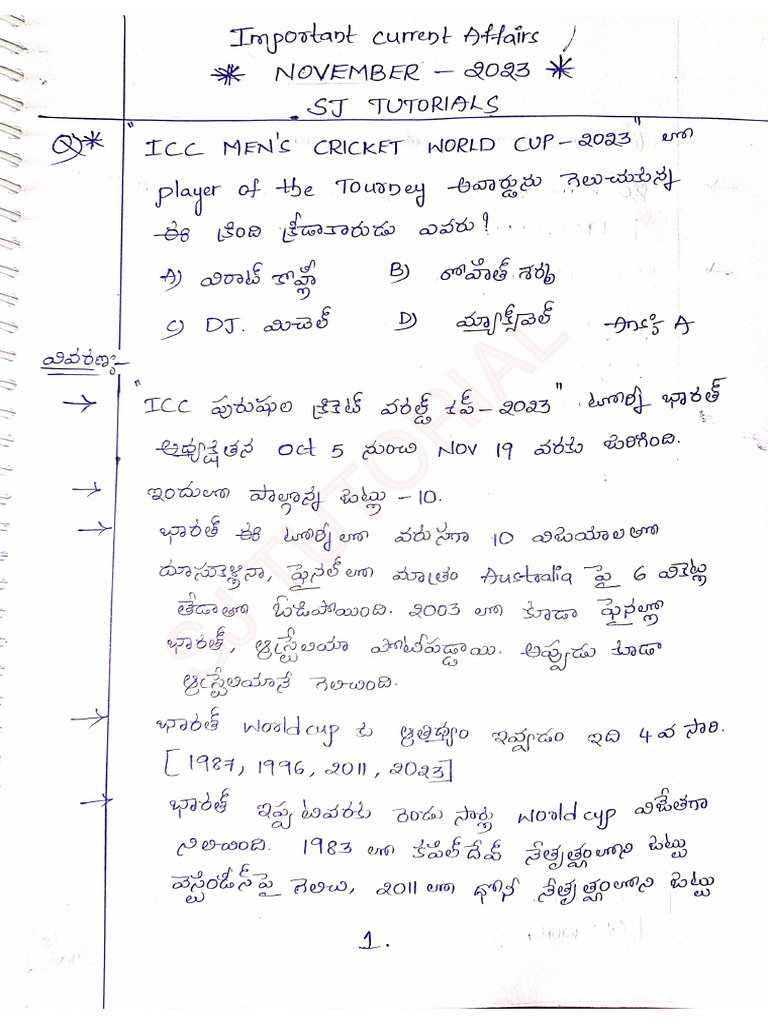 Important Current Affairs
* NOVEMBER - 2023 *
SJ TUTORIALS
Q* "ICC MEN'S CRICKET WORLD CUP - 2023" లో
player of the Tourney అవార్డును గెలుచుకున్న
ఈ క్రింది క్రీడాకారుడు ఎవరు?
A) విరాట్ కోహ్లీ B) రోహిత్ శర్మ
C) DJ. మిచెల్ D) మ్యాక్స్‌వెల్ Ans: A
వివరణ:-
→ "ICC పురుషుల క్రికెట్ వరల్డ్ కప్ - 2023" టోర్నీ భారత్
అధ్యక్షతన Oct 5 నుంచి Nov 19 వరకు జరిగింది.
→ ఇందులో పాల్గొన్న జట్లు - 10.
→ భారత్ ఈ టోర్నీలో వరుసగా 10 విజయాలతో
దూసుకెళ్లినా, ఫైనల్‌లో మాత్రం Australia పై 6 వికెట్ల
తేడాతో ఓడిపోయింది. 2003 లో కూడా ఫైనల్లో
భారత్, ఆస్ట్రేలియా పోటీపడ్డాయి. అప్పుడు కూడా
ఆస్ట్రేలియానే గెలిచింది.
→ భారత్ World cup కు ఆతిథ్యం ఇవ్వడం ఇది 4వ సారి.
[1987, 1996, 2011, 2023]
→ భారత్ ఇప్పటివరకు రెండు సార్లు World cup విజేతగా
నిలిచింది. 1983 లో కపిల్ దేవ్ నేతృత్వంలోని జట్టు
వెస్టిండీస్‌పై గెలిచి, 2011 లో ధోనీ నేతృత్వంలోని జట్టు
1.
SJ TUTORIAL